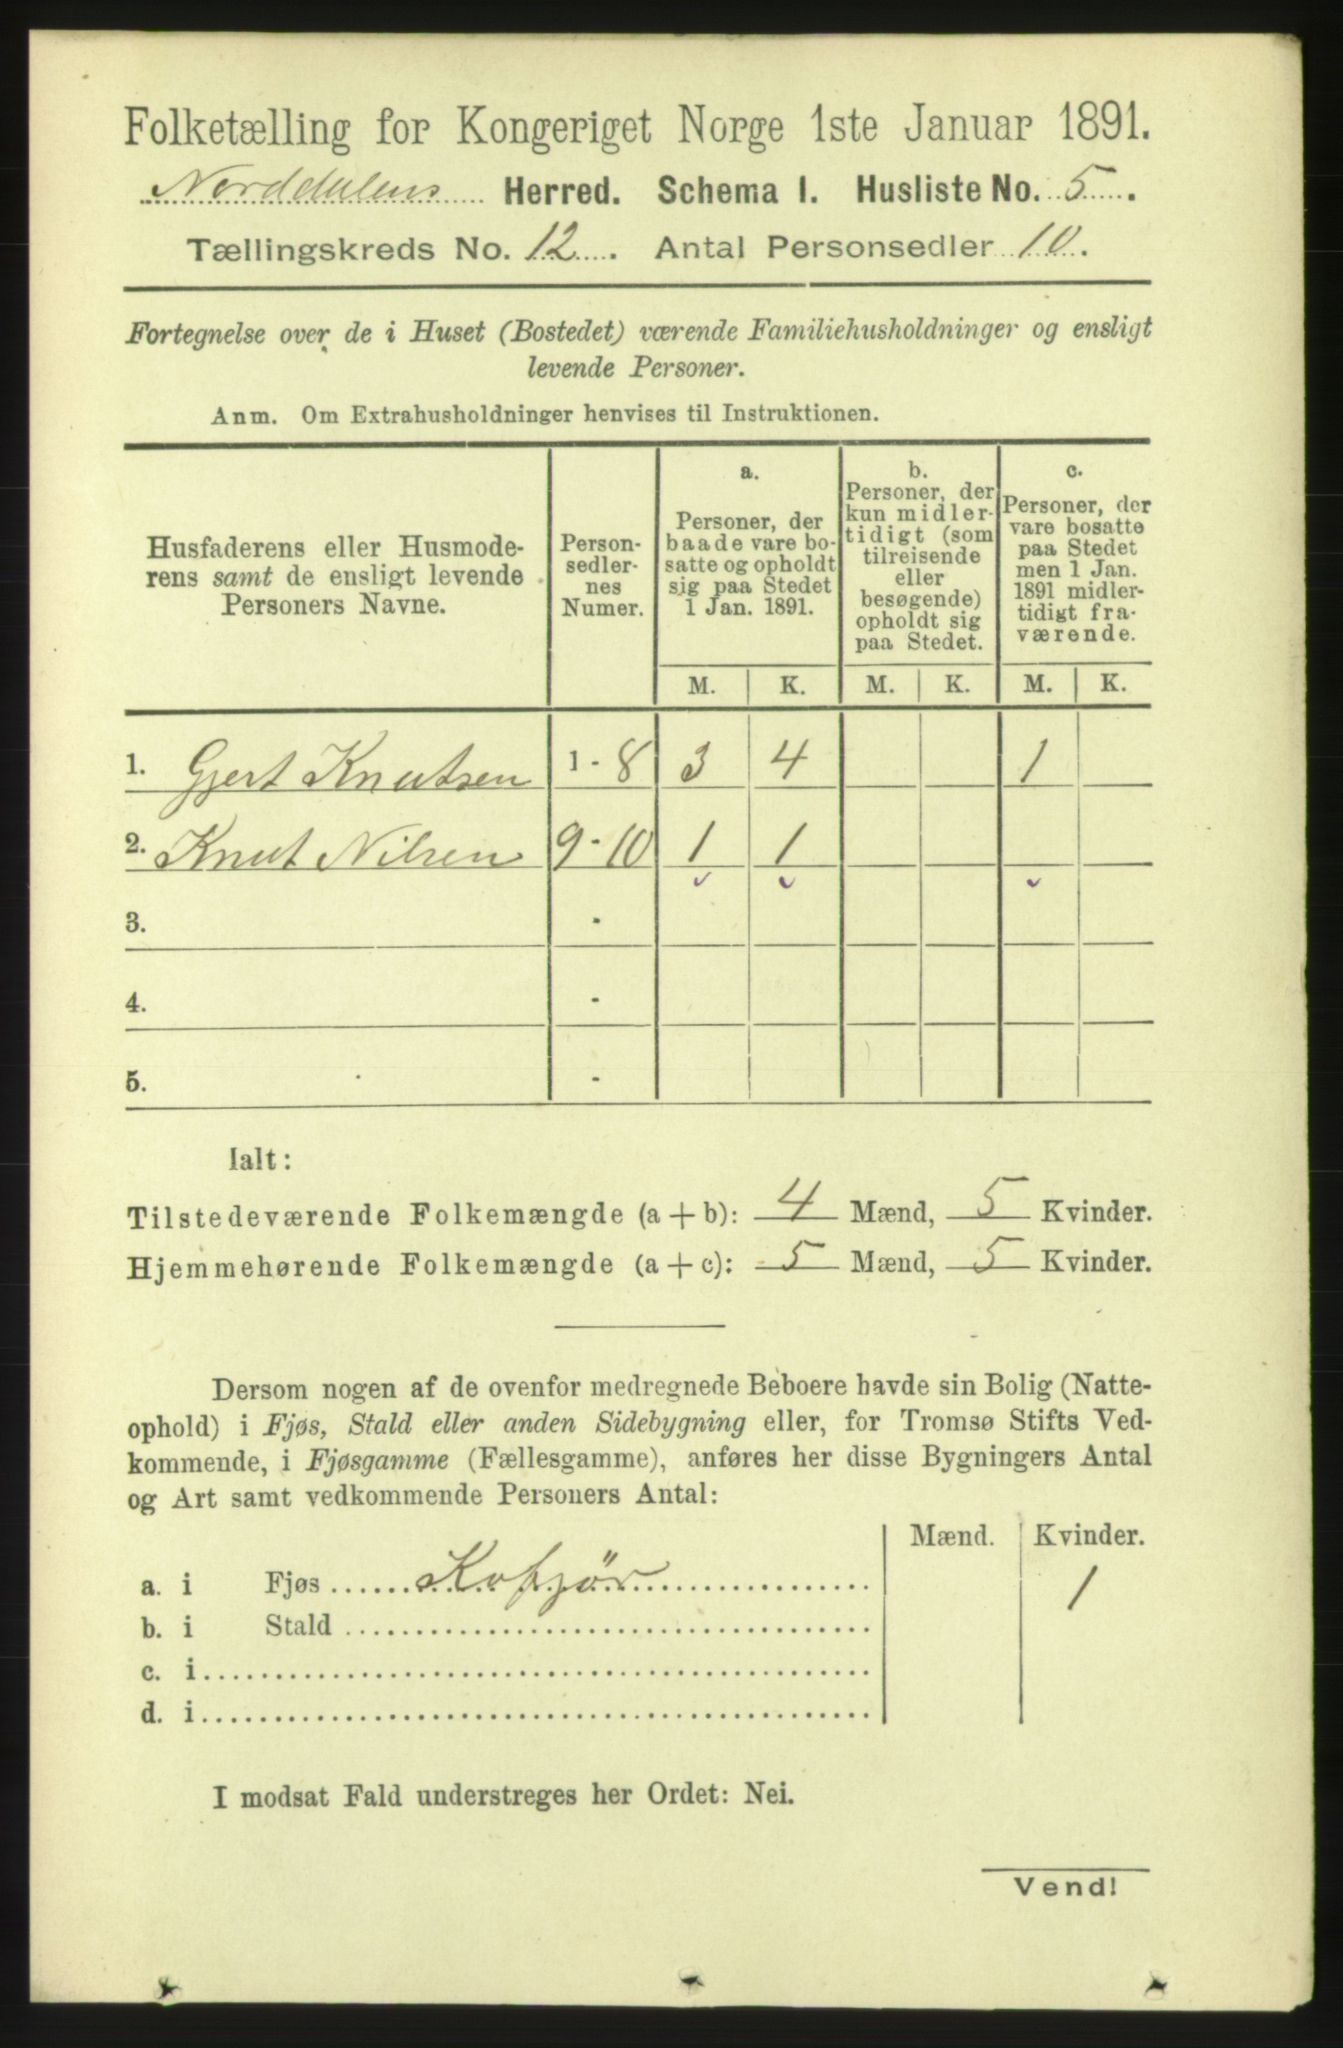 Folketælling for Kongeriget Norge 1ste Januar 1891.
Norddalens Herred. Schema I. Husliste No. 5.
Tællingskreds No. 12. Antal Personsedler 10.
Fortegnelse over de i Huset (Bostedet) værende Familiehusholdninger og ensligt
levende Personer.
Anm. Om Extrahusholdninger henvises til Instruktionen.
Husfaderens eller Husmode-
rens samt de ensligt levende
Personers Navne.
Person-
sedler-
nes
Numer.
a.
Personer, der
baade vare bo-
satte og opholdt
sig paa Stedet
1 Jan. 1891.
b.
Personer, der
kun midler-
tidigt (som
tilreisende
eller
besøgende)
opholdt sig
paa Stedet.
c.
Personer, der
vare bosatte
paa Stedet
men 1 Jan.
1891 midler-
tidigt fra-
værende.
M. K. M. K. M. K.
1. Gjert Knutsen 1-8 3 4 1
2. Knut Nilsen 9-10 1 1
3. -
4. -
5. -
Ialt:
Tilstedeværende Folkemængde (a + b): 4 Mænd, 5 Kvinder.
Hjemmehørende Folkemængde (a + c): 5 Mænd, 5 Kvinder.
Dersom nogen af de ovenfor medregnede Beboere havde sin Bolig (Natte-
ophold) i Fjøs, Stald eller anden Sidebygning eller, for Tromsø Stifts Ved-
kommende, i Fjøsgamme (Fællesgamme), anføres her disse Bygningers Antal
og Art samt vedkommende Personers Antal:
Mænd. Kvinder.
a. i Fjøs ...... 1
b. i Stald ......
c. i ......
d. i ......
I modsat Fald understreges her Ordet: Nei.
Vend!